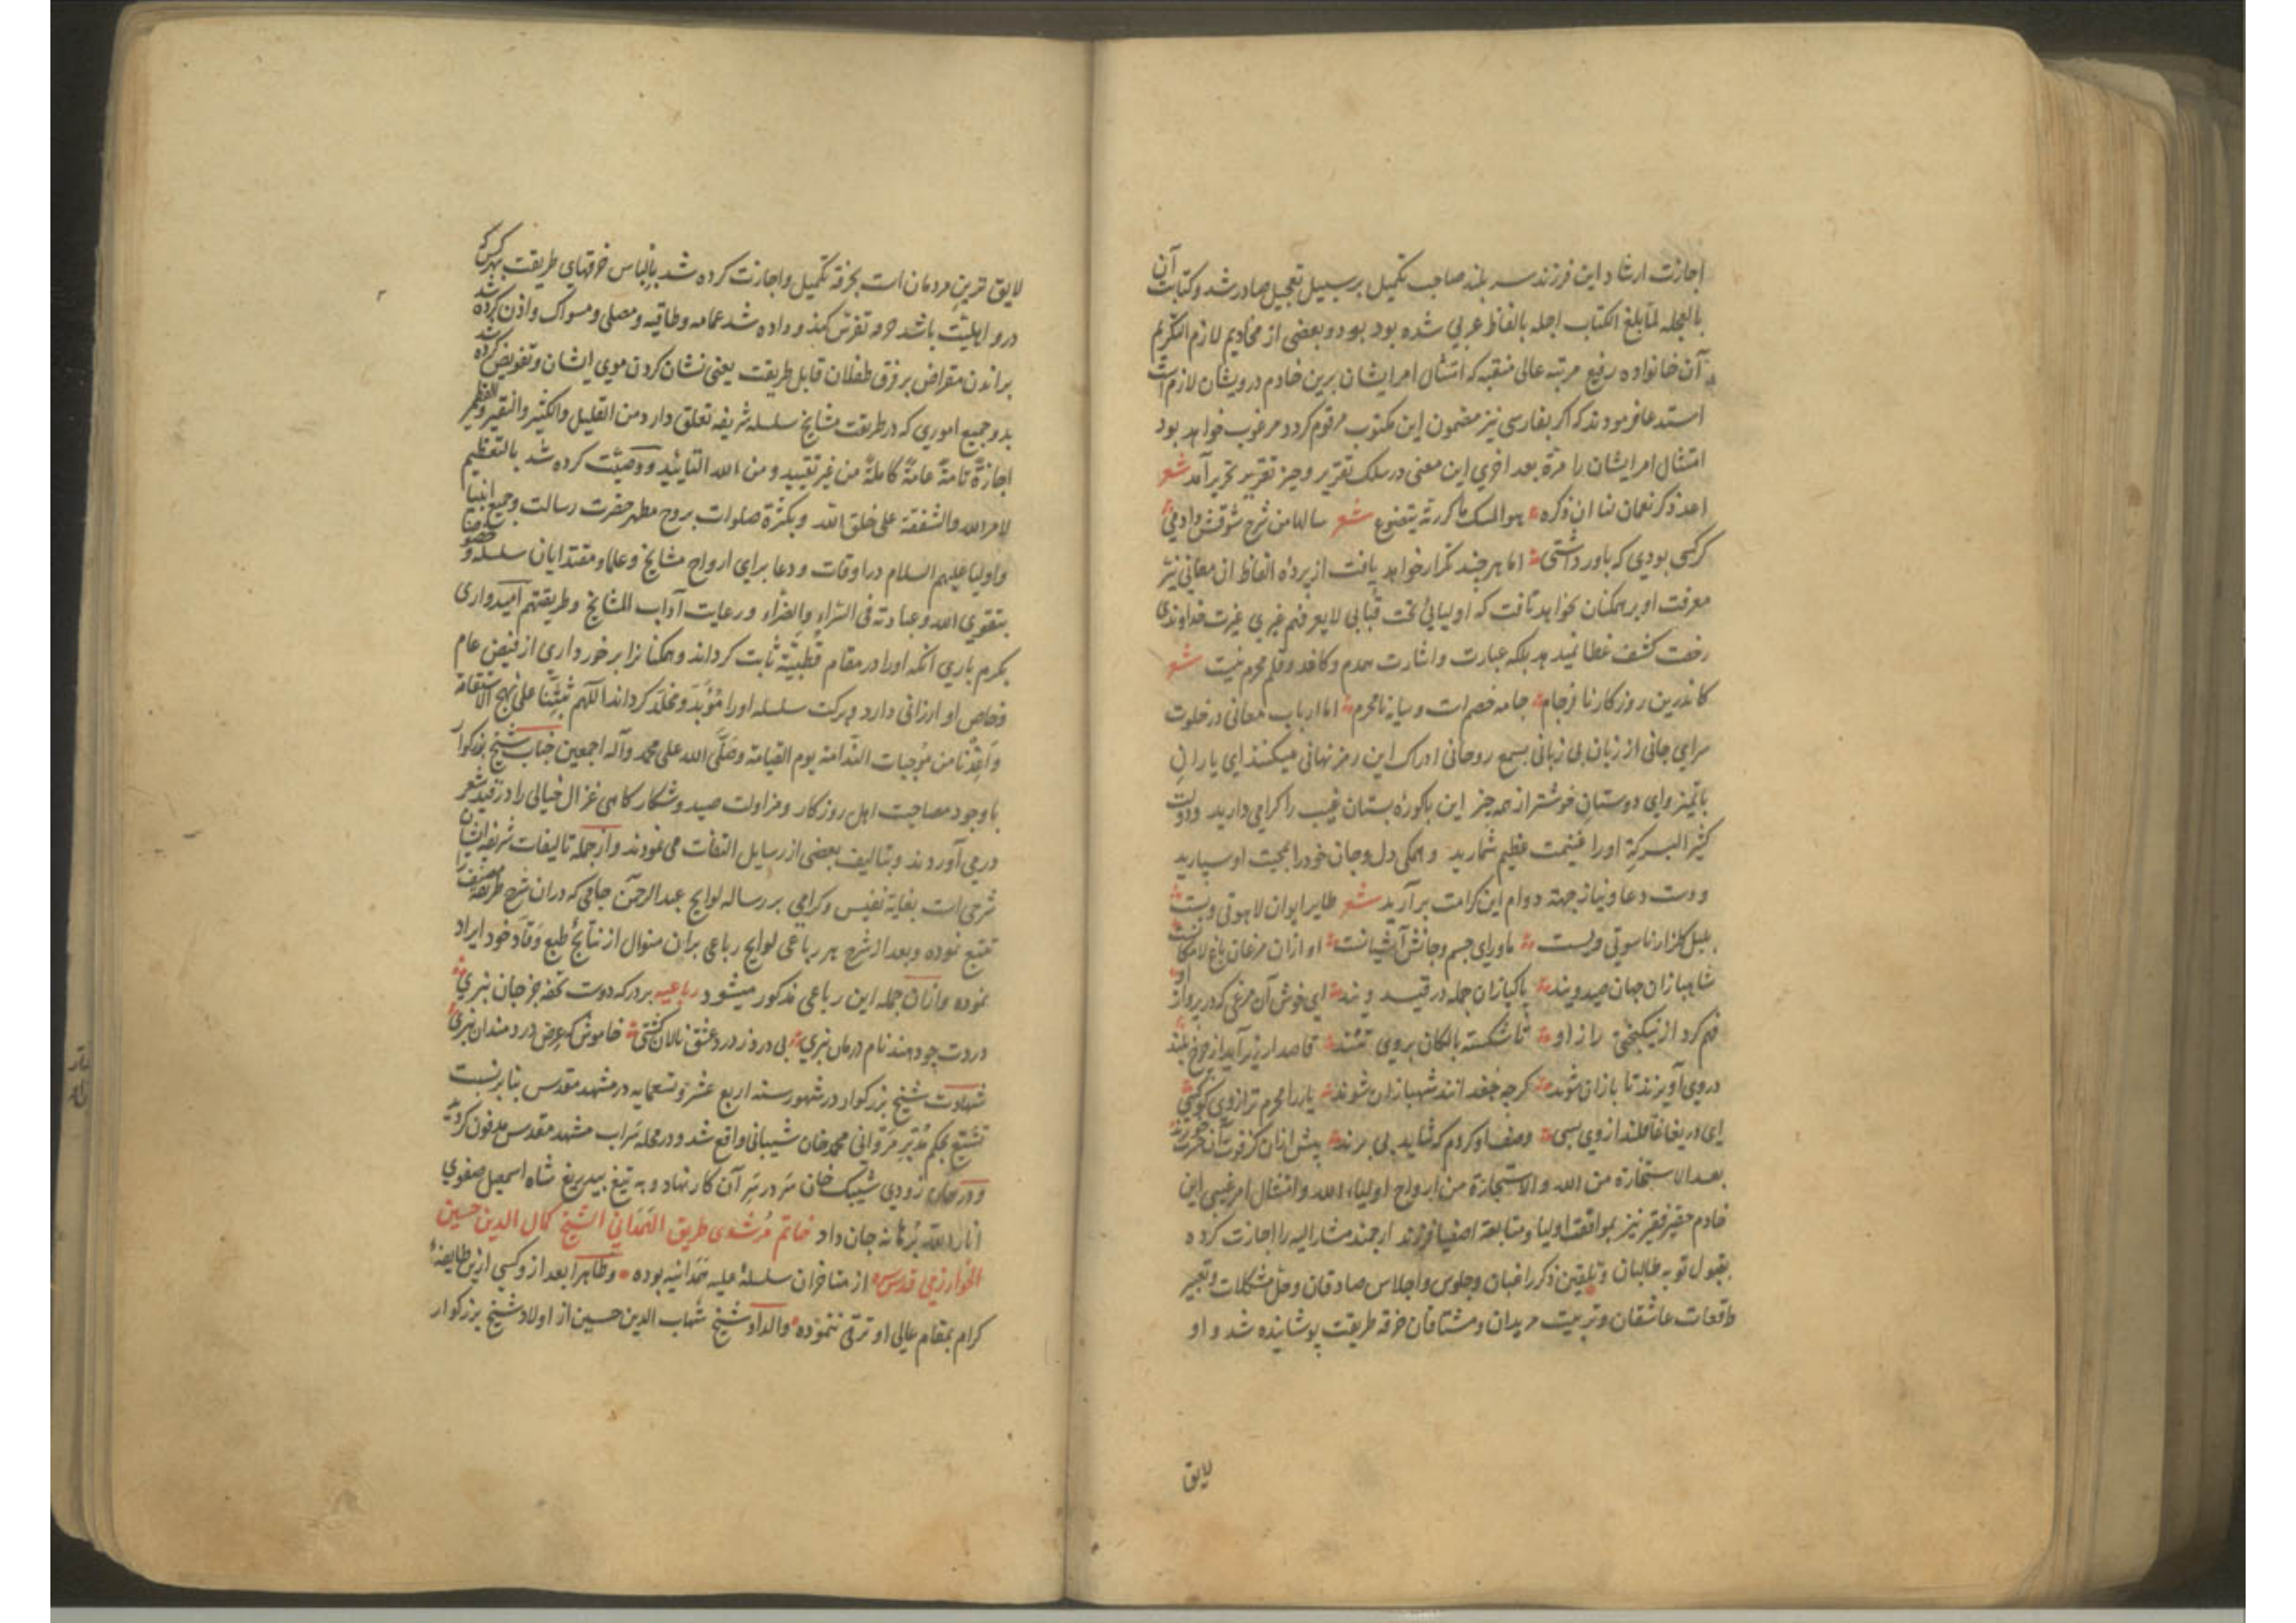 اجازت ارشاد این فرزند سر بلند صاحب تکمیل بر سبیل تعجیل صادر شد و کتابت آن
بالعجله لمّا بلغ الکتاب اجله بالفاظ عربی شده بود بود و بعضی از مخادیم لازم التکریم
آن خانواده رفیع مرتبه عالی منقبه که امتثال امر ایشان برین خادم درویشان لازم است
استدعا فرمودند که اکر بفارسی نیز مضمون این مکتوب مرقوم کردد مرغوب خواهد بود
امتثال امر ایشان را مرّة بعد اخری این معنی در سلک تقریر و حیز تحریر آمد شعر
اعد ذکر نعمان لنا ان ذکره هو المسک ما کررته یتضوع شعر سالها من شرح شوقش دادمی
کر کسی بودی که باور داشتی اما هر چند تکرار خواهد یافت از پرده الفاظ ان معانی نیز
معرفت او بر همکنان نخواهد تافت که اولیائی تحت قبابی لا یعرفهم غیری غیرت خداوندی
رخصت کشف غطا نمیدهد بلکه عبارت و اشارت همدم و کاغد و قلم محرم نیست شعر
کاندرین روزکار نافرجام جامه خصم است و سایه نامحرم اما ارباب معانی در خلوت
سرای جانی از زبان بی زبانی بسمع روحانی ادراک این رمز نهانی میکنند ای یاران
باتمیز و ای دوستان خوشتر از همه چیز این باکوره بستان غیب را کرامی دارید و دولت
کثیر البرکة او را غنیمت عظیم شمارید و همکی دل و جان خود را بمحبت او سپارید
و دست دعا و نیاز جهة دوام این کرامت بر آرید شعر طایر ایوان لاهوتی ویست
بلبل کلزار ناسوتی ویست ماورای جسم و جانش آشیانست او ازان مرغان باغ لامکانست
شاهبازان جهان صید ویند پاکبازان جمله در قید ویند ای خوش آن مرغی که در پرواز او
فهم کرد از نیکبختی راز او تا شکسته بالکان بروی تنند قاصدان زیر آیند از چرخ بلند
در وی آویزند تا بازان شوند کرچه جغدانند شهبازان شوند
ای دریغا غافلند از وی بسی وصف او کردم که شاید پی برند پیش ازان کز فوت آن حسرت خورند
بعد الاستخارة من الله والاستجازة من ارواح اولیاء الله و امتثال امر غیبی این
خادم حقیر فقیر نیز بموافقت اولیا و متابعة اصفیا فرزند ارجمند مشار الیه را اجازت کرده
بقبول توبه طالبان و تلقین ذکر راغبان و جلوس و اجلاس صادقان و حل مشکلات و تعبیر
واقعات عاشقان و تربیت مریدان و مشتاقان خرقه طریقت پوشانیده شد و او
لایق
لایق ترین مردمان است بخرقه تکمیل و اجازت کرده شد بالباس خرقهای طریقت بهر کس که
در و اهلیت باشد تفرس کند و داده شد عمامه و طاقیه و مصلی و مسواک و اذن کرده شد
براندن مقراض بر فرق طفلان قابل طریقت یعنی نشان کردن موی ایشان و تفویض کرده شد
بدو جمیع اموری که در طریقت مشایخ سلسله شریفه تعلق دارد من القلیل والکثیر والنقیر والقطمیر
اجازةً تامةً عامةً کاملةً من غیر تقیید و من الله التایید و وصیّت کرده شد بالتعظیم
لامر الله والشفقة علی خلق الله و بکثرة صلوات بروح مطهر حضرت رسالت و جمیع انبیا
و اولیا علیهم السلام در اوقات و دعا برای ارواح مشایخ و علما و مقتدایان سلسله خصوصا
بتقوی الله و عبادته فی السّراء والضرّاء و رعایت آداب المشایخ و طریقتهم امیدواری
بکرم باری آنکه او را در مقام قطبیّة ثابت کرداند و همکنانرا برخورداری از فیض عام
و خاص او ارزانی دارد و برکت سلسله او را مؤبّد و مخلّد کرداند اللّهم ثبّتنا علی نهج الاستقامة
و اعذنا من موجبات النّدامة یوم القیامة و صلّی الله علی محمد و آله اجمعین جناب شیخ بزرکوار
با وجود مصاحبت اهل روزکار و مزاولت صید و شکار کاهی غزال خیالی را در قید شعر
در می آوردند و بتالیف بعضی از رسایل التفات می نمودند و از جمله تالیفات شریفه ایشان
شرحی است بغایة نفیس و کرامی بر رساله لوایح عبد الرحمن جامی که دران شرح طریقه مصنف را
تتبع نموده و بعد از شرح هر رباعی لوایح رباعی بران منوال از نتایج طبع وقّاد خود ایراد
نموده و ازان جمله این رباعی مذکور میشود رباعیه بر درکه دوست تحفه جز جان نبری
دردت چو دهند نام درمان نبری بی درد ز درد عشق نالان کشتی خاموش که عرض دردمندان نبری
شهادت شیخ بزرکوار در شهور سنه اربع عشر و تسعمایه در مشهد مقدس بنا بر نسبت
تشیّع بحکم محمد خان شیبانی واقع شد و در محله سراب مشهد مقدس مدفون کردید
و در همان زودی شیبک خان سر در سر آن کار نهاد و به تیغ بیدریغ شاه اسمعیل صفوی
انار الله برهانه جان داد خاتم مرشدی طریق الهمدانی الشیخ کمال الدین حسین
الخوارزمی قدس سره از متاخران سلسلهٔ علیه همدانیه بوده و ظاهرا بعد از و کسی ازین طایفهٔ
کرام بمقام عالی او ترقی ننموده والد او شیخ شهاب الدین حسین از اولاد شیخ بزرکوار